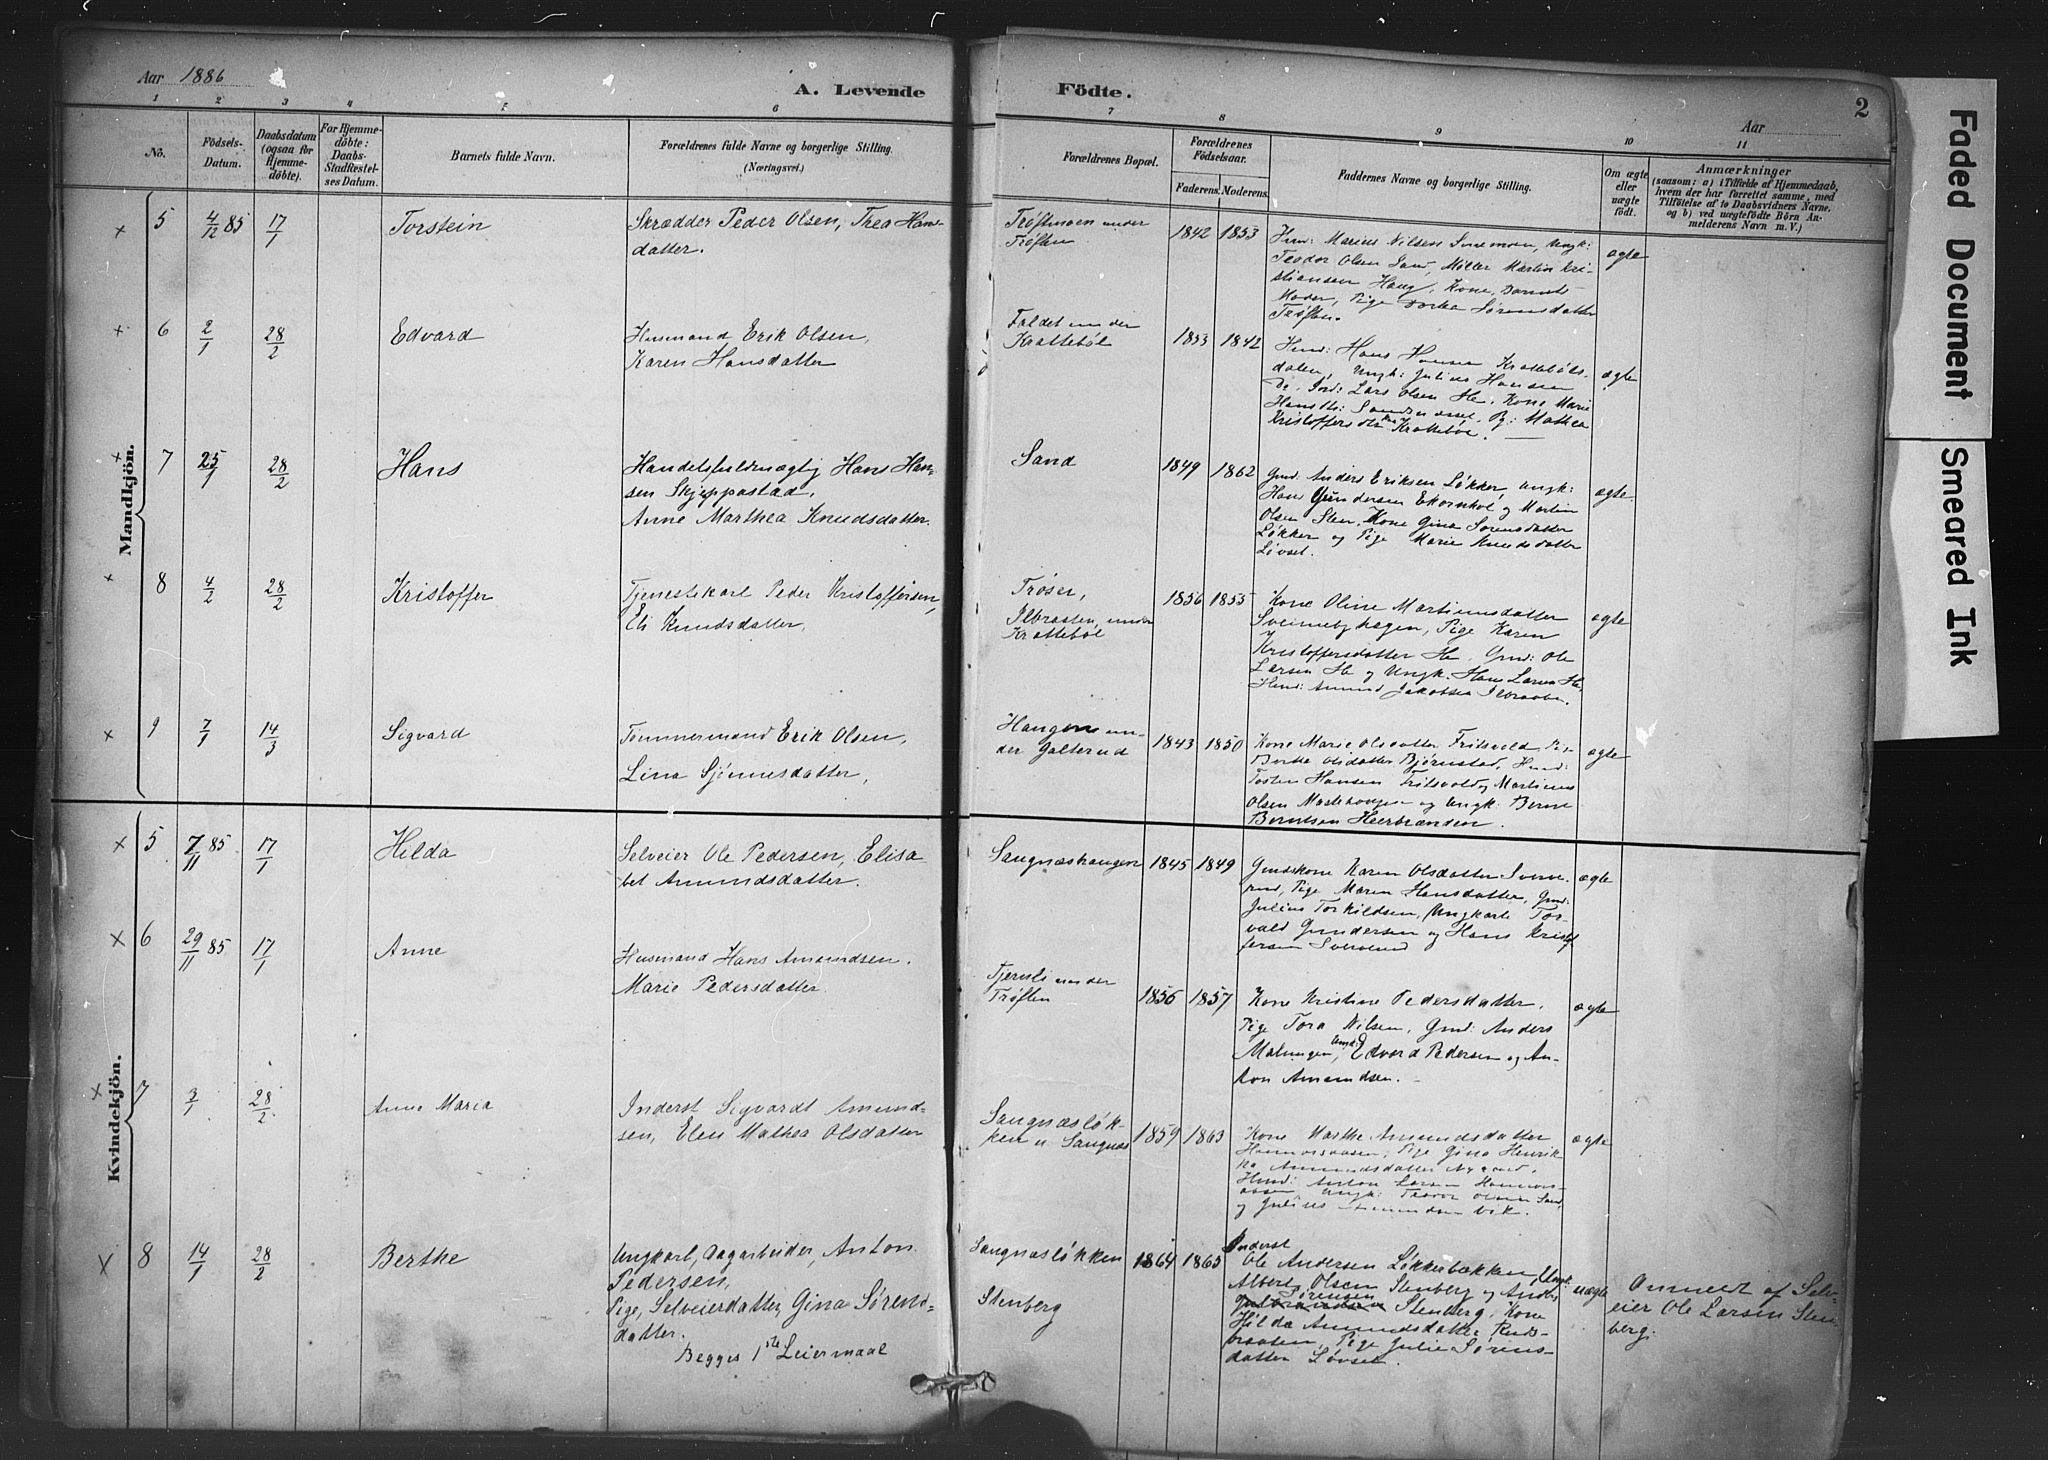 Aar 1886
A. Levende
Födte.
Aar
2
1 2 3 4 5 6 7 8 9 10 11
No.
Födsels-
Datum.
Daabsdatum
(ogsaa for
Hjemme-
döbte).
For Hjemme-
döbte:
Daabs-
Stadfæstel-
ses Datum.
Barnets fulde Navn.
Forældrenes fulde Navne og borgerlige Stilling.
(Næringsvei.)
Forældrenes Bopæl.
Forældrenes
Födselsaar.
Faderens. Moderens.
Faddernes Navne og borgerlige Stilling.
Om ægte
eller
uægte
födt.
Anmærkninger
(saasom: a) i Tilfælde af Hjemmedaab,
hvem der har forrettet samme, med
Tilföielse af to Daabsvidners Navne.
og b) ved uægtefödte Börn An-
melderens Navn m. V.)
Mandkjön.
× 5 4/12 85 17/1 Torstein
Skrædder Peder Olsen, Thea Hans-
datter.
Trøftmoen under
Trøften
1842 1853
Husm: Marius Nilsen, Ungk:
Teodor Olsen Sand, Møller Martin Kri-
stiansen Haug, Kone, Barnets
Moder, Pige Dorthea Sørensdatter
Trøften.
ægte
× 6 2/1 28/2 Edvard
Husmand Erik Olsen,
Karen Hansdatter
Faldet under
Krattebøl
1853 1842
Husm: Hans Hansen Krattebøls-
dalen, Ungk: Julius Hansen
Do. Lars Olsen He. Kone Marie
Hansdtr: Pg: Mathea
Kristoffersdtr Krattebøl.
ægte
× 7 25/1 28/2 Hans
Handelsfuldmægtig Hans Han-
sen Skjeppastad,
Anne Marthea Knudsdatter.
Sand
1849 1862
Gmd: Anders Eriksen Løkker, Ungk:
Hans Gundersen Ekornhol og Martin
Olsen Sten, Kone Gina Sørensdatter
Løkker og Pige Marie Knudsdatter
Løvset.
ægte
× 8 4/2 28/2 Kristoffer
Tjenestekarl Peder Kristoffersen,
Eli Knudsdatter,
Trøser,
Ilbraaten, under
Krattebøl
1856 1855
Kone Oline Martinusdatter
Sveinebyhagen, Pige Karen
Kristoffersdatter He. Gmd: Ole
Larsen He og Ungk. Hans Larsen He
Husmd: Amund Jakobsen Ilbraaten.
ægte
× 9 7/1 14/3 Sigvard
Tømmermand Erik Olsen,
Lina Sjønnesdatter,
Haugen un-
der Galterud
1843 1850
Kone Marie Olsdatter Fritsvold, Pi-
Berthe Olsdatter Bjørnstad, Husmd:
Tosten Hansen Fritsvold, Martinus
Olsen og Ungk: Bernt
Berntsen Heerbrænden.
ægte
Kvindekjön.
× 5 7/11 85 17/1 Hilda
Selveier Ole Pedersen, Elisa-
bet Amundsdatter.
Sangnæshaugen
1845 1849
Gmdskone Karen Olsdatter Sverve-
rud, Pige Maren Hansdatter, Gmd:
Julius Torkildsen, Ungkarle Tor-
vald Gundersen og Hans Kristof-
fersen Sververud
ægte
× 6 29/11 85 17/1 Anne
Husmand Hans Amundsen.
Marie Pedersdatter.
Tjernli under
Trøften
1856 1857
Kone Kristine Pedersdatter,
Pige Tora Nilsen, Gmd: Anders
Malungen, Edvard Pedersen og An-
ton Amundsen.
ægte
× 7 3/1 28/2 Anne Maria
Inderst Sigvardt Amund-
sen, Elen Mathea Olsdatter
Sangnæsløk-
ken u. Sangnæs
1859 1863
Kone Marthe Amundsdatter
Pige Gina Henrik-
ke Amundsdatter Nygaard,
Husmd: Anton Larsen
Ungk: Teodor Olsen Sand,
og Julius Amundsen Vik.
ægte
× 8 14/1 28/2 Berthe
Ungkarl, Dagarbeider, Anton
Pedersen,
Pige, Selveierdatter, Gina Sørens-
datter.
Begges 1ste Leiermaal
Sangnæsløkken
Stenberg
1864 1865
Inderst
Ole Andersen Løkkebækken, Ungk:
Albert Olsen Stenberg og
Sørensen
Stenberg, Kone
Hilda Amundsdatter Ruds-
braaten, Pige Julie Sørens-
datter Løvset
uægte
Anmeldt af Selv-
eier Ole Larsen Sten-
berg.
Faded Document
Smeared Ink